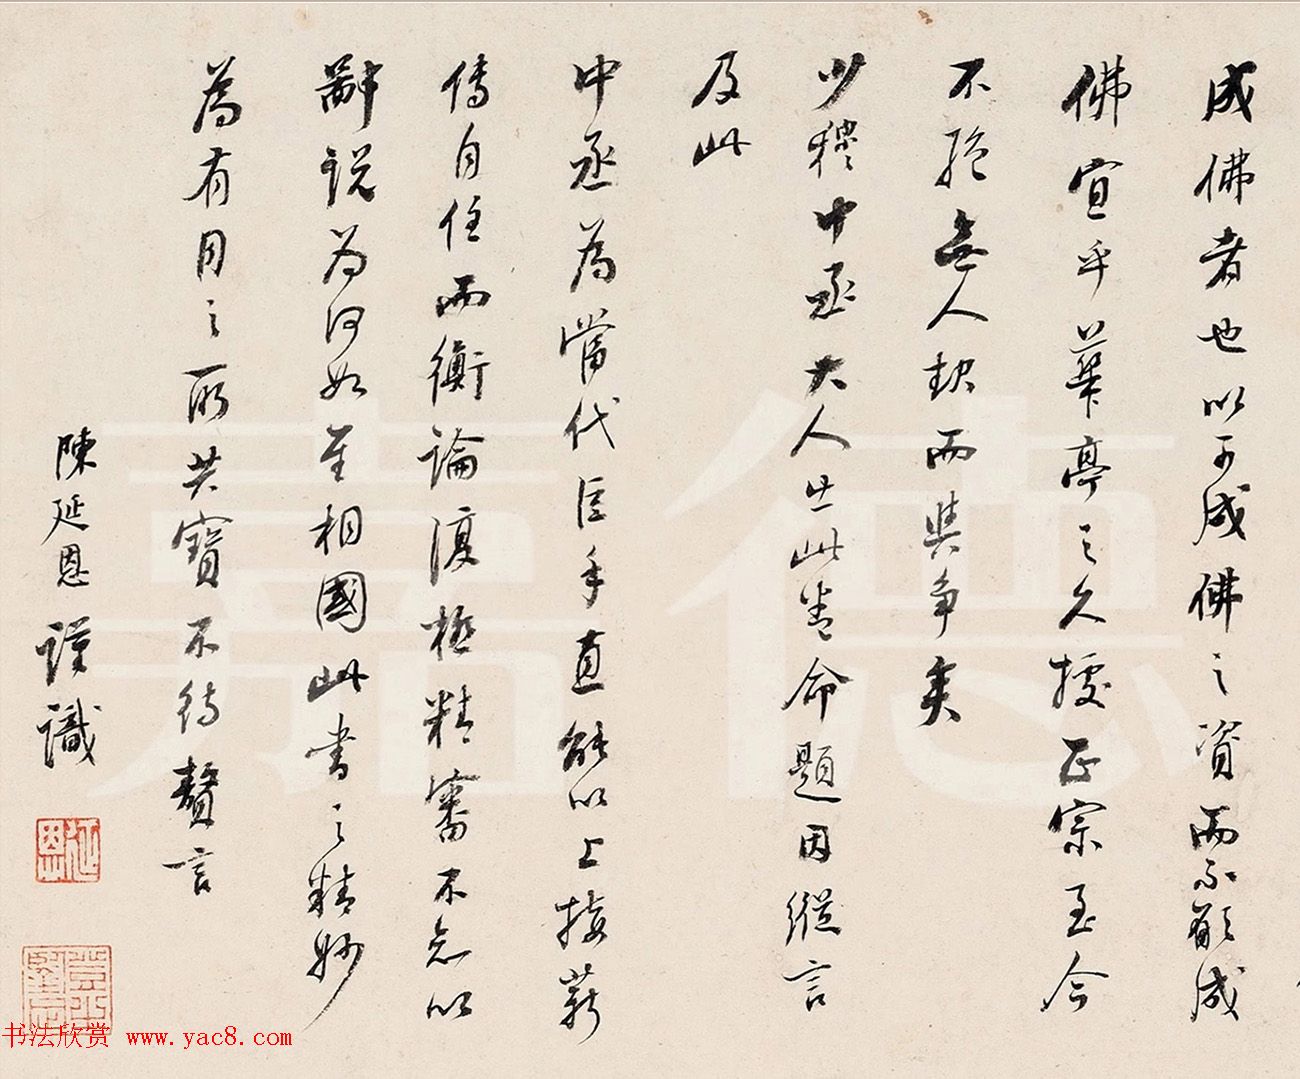 成佛者也以可成佛之資而不願成
佛宜乎華亭之久據正宗至今
不絕無人敢而與爭矣
少穆中丞大人出此卷命題因縱言
及此
中丞為當代巨手直能以上接薪
傳自任而衡論復極精審不知以
斯說為何如至相國此書之精妙
為有目之所共寶不待贅言
陳延恩謹識
延恩
嘉德
书法欣赏 www.yac8.com